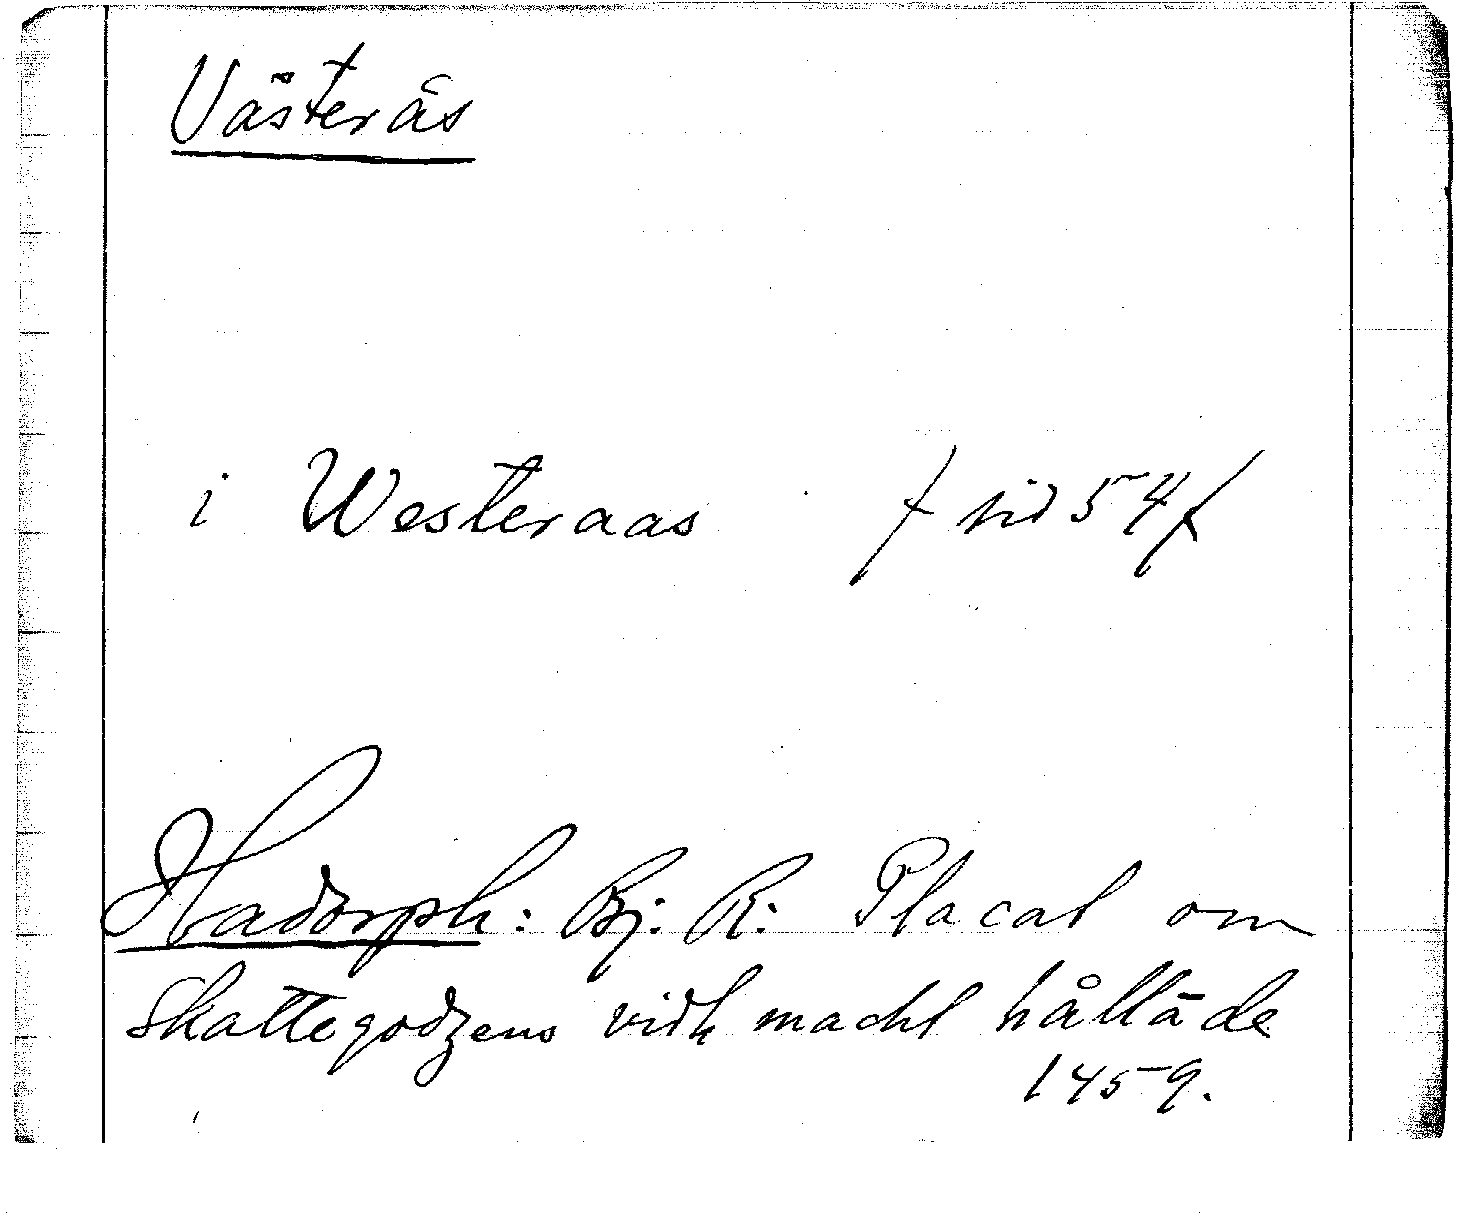 Västerås
i Westeraas / sid 54 /
Hadorph: Bj. R: Placat om
skattegodzens vidh macht hållāde
1459.